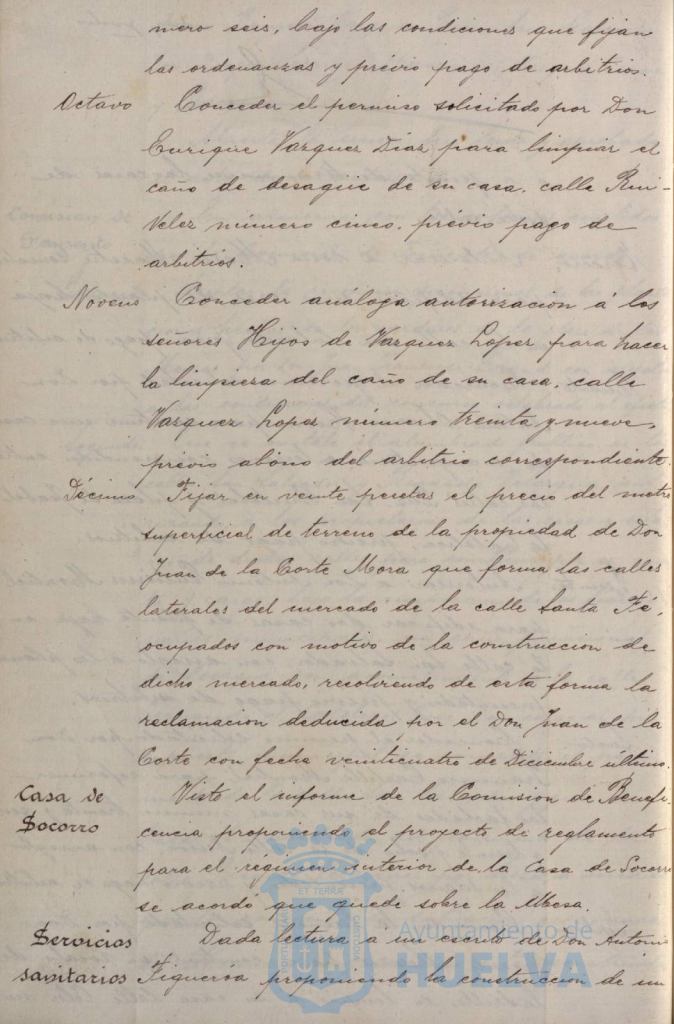 mero seis, bajo las condiciones que fijan
las ordenanzas y prévio pago de arbitrios.
Octavo Conceder el permiso solicitado por Don
Enrique Vazquez Díaz para limpiar el
caño de desagüe de su casa, calle Rui-
Velez número cinco, prévio pago de
arbitrios.
Noveno Conceder análoga autorizacion á los
señores Hijos de Vazquez Lopez para hacer
la limpieza del caño de su casa, calle
Vazquez Lopez número treinta y nueve,
prévio abono del arbitrio correspondiente.
Décimo Fijar en veinte pesetas el precio del metro
superficial de terreno de la propiedad de Don
Juan de la Corte Mora que forma las calles
laterales del mercado de la calle Santa Fé,
ocupados con motivo de la construccion de
dicho mercado, resolviendo de esta forma la
reclamacion deducida por el Don Juan de la
Corte con fecha veinticuatro de Diciembre último.
Casa de Socorro
Visto el informe de la Comision de Benefi
cencia proponiendo el proyecto de reglamento
para el régimen interior de la Casa de Socorro
se acordó que quede sobre la Mesa.
Servicios sanitarios
Dada lectura á un escrito de Don Antonio
Figueroa proponiendo la construccion de un
Ayuntamiento de
HUELVA